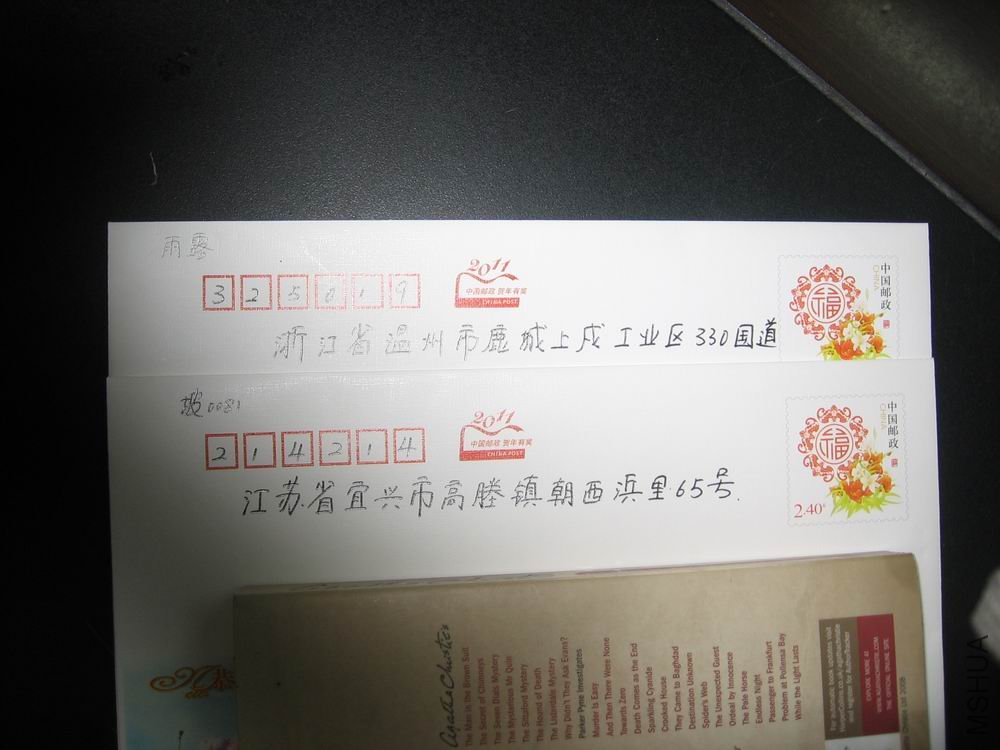 雨露
325019
2011
中国邮政 贺年有奖
CHINA POST
中国邮政
CHINA
福
浙江省温州市鹿城上戍工业区330国道
坡0081
214214
2011
中国邮政 贺年有奖
CHINA POST
中国邮政
CHINA
福
2.40
江苏省宜兴市高塍镇朝西浜里65号.
Agatha Christie
The Man in the Brown Suit
The Secret of Chimneys
The Seven Dials Mystery
The Mysterious Mr Quin
The Sittaford Mystery
The Hound of Death
The Listerdale Mystery
Why Didn't They Ask Evans?
Parker Pyne Investigates
Murder Is Easy
And Then There Were None
Towards Zero
Death Comes as the End
Sparkling Cyanide
Crooked House
They Came to Baghdad
Destination Unknown
Spider's Web
The Unexpected Guest
Ordeal by Innocence
The Pale Horse
Endless Night
Passenger to Frankfurt
Problem at Pollensa Bay
While the Light Lasts
EXPLORE MORE AT
WWW.AGATHACHRISTIE.COM
THE OFFICIAL ONLINE SITE
MSHUA